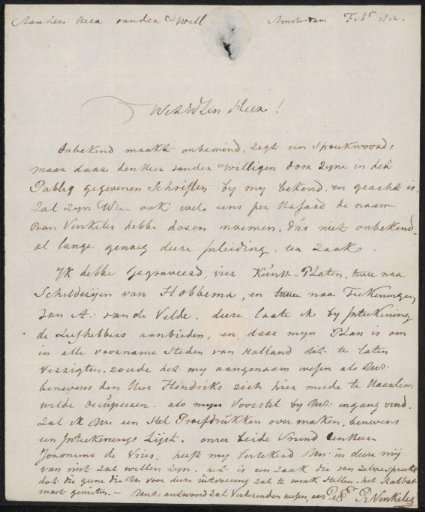 Aan den Heer van den Will
Amsterdam Feb
WelEdelen Heer!
Onbekend maakt onbemind, zegt een Spreekwoord,
maar daar den Heer van der Willigen door zyne in het
Publiq gegevene Schriften by my bekend, en geacht is,
Zal zyn ook wel eens per de naam
van Vinkeles hebbe hooren noemen, dus niet onbekend,
al lange genoeg deeze inleiding. ter Zaak
Ik hebbe gegraveerd vier Kunst-Plaaten, twee naa
Schilderijen van Hobbema, en twee naa Teekeningen
van A. van de Velde. deeze laate ik by Inteekening
de Liefhebbers aanbieden, en daar myn Plan is om
in alle voorname Steden van Holland dit te laten
verzigten, zoude het my aangenaam wesen als
benevens den Heer Hendriks zich hier mede te Haarlem
wilde occuperen. als myn Voorstel by ingang vind,
Zal ik een Stel Proefdrukken over maken, benevens
een Inteekenings Lyst. onze beide Vriend den Heer
Jeronimo de Vries, heeft my Verzekerd in deeze my
van niet zal willen zyn. het is een Zaak die van zelve spreekt
dat die geene die voor deeze uitvoering zal te werk stellen, het Rabbat
moet genieten. antwoord zal Verbinden
R Vinkeles